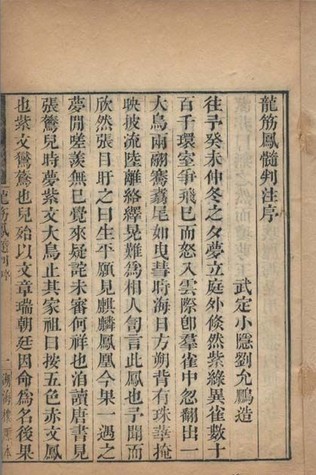 龍筋鳳髓判注序
武定小隱劉允鵬造
往予癸未仲冬之夕夢立庭外倏然紫綠異雀數十
百千環室爭飛已而怒入雲際卽羣雀中忽翻出一
大鳥兩翮鸞翥尾如曳彗時海日方朔背有珠華掩
映披流陸離絡繹晃難爲相人訇言此鳳也予聞而
欣然張目盱之曰生平願見麒麟鳳凰今果一遇之
夢閒嗟羨無已覺來疑詫未審何祥也洎讀唐書見
張鷟兒時夢紫文大鳥止其家祖曰按五色赤文鳳
也紫文鸑鷟也兒殆以文章瑞朝廷因命爲名後果